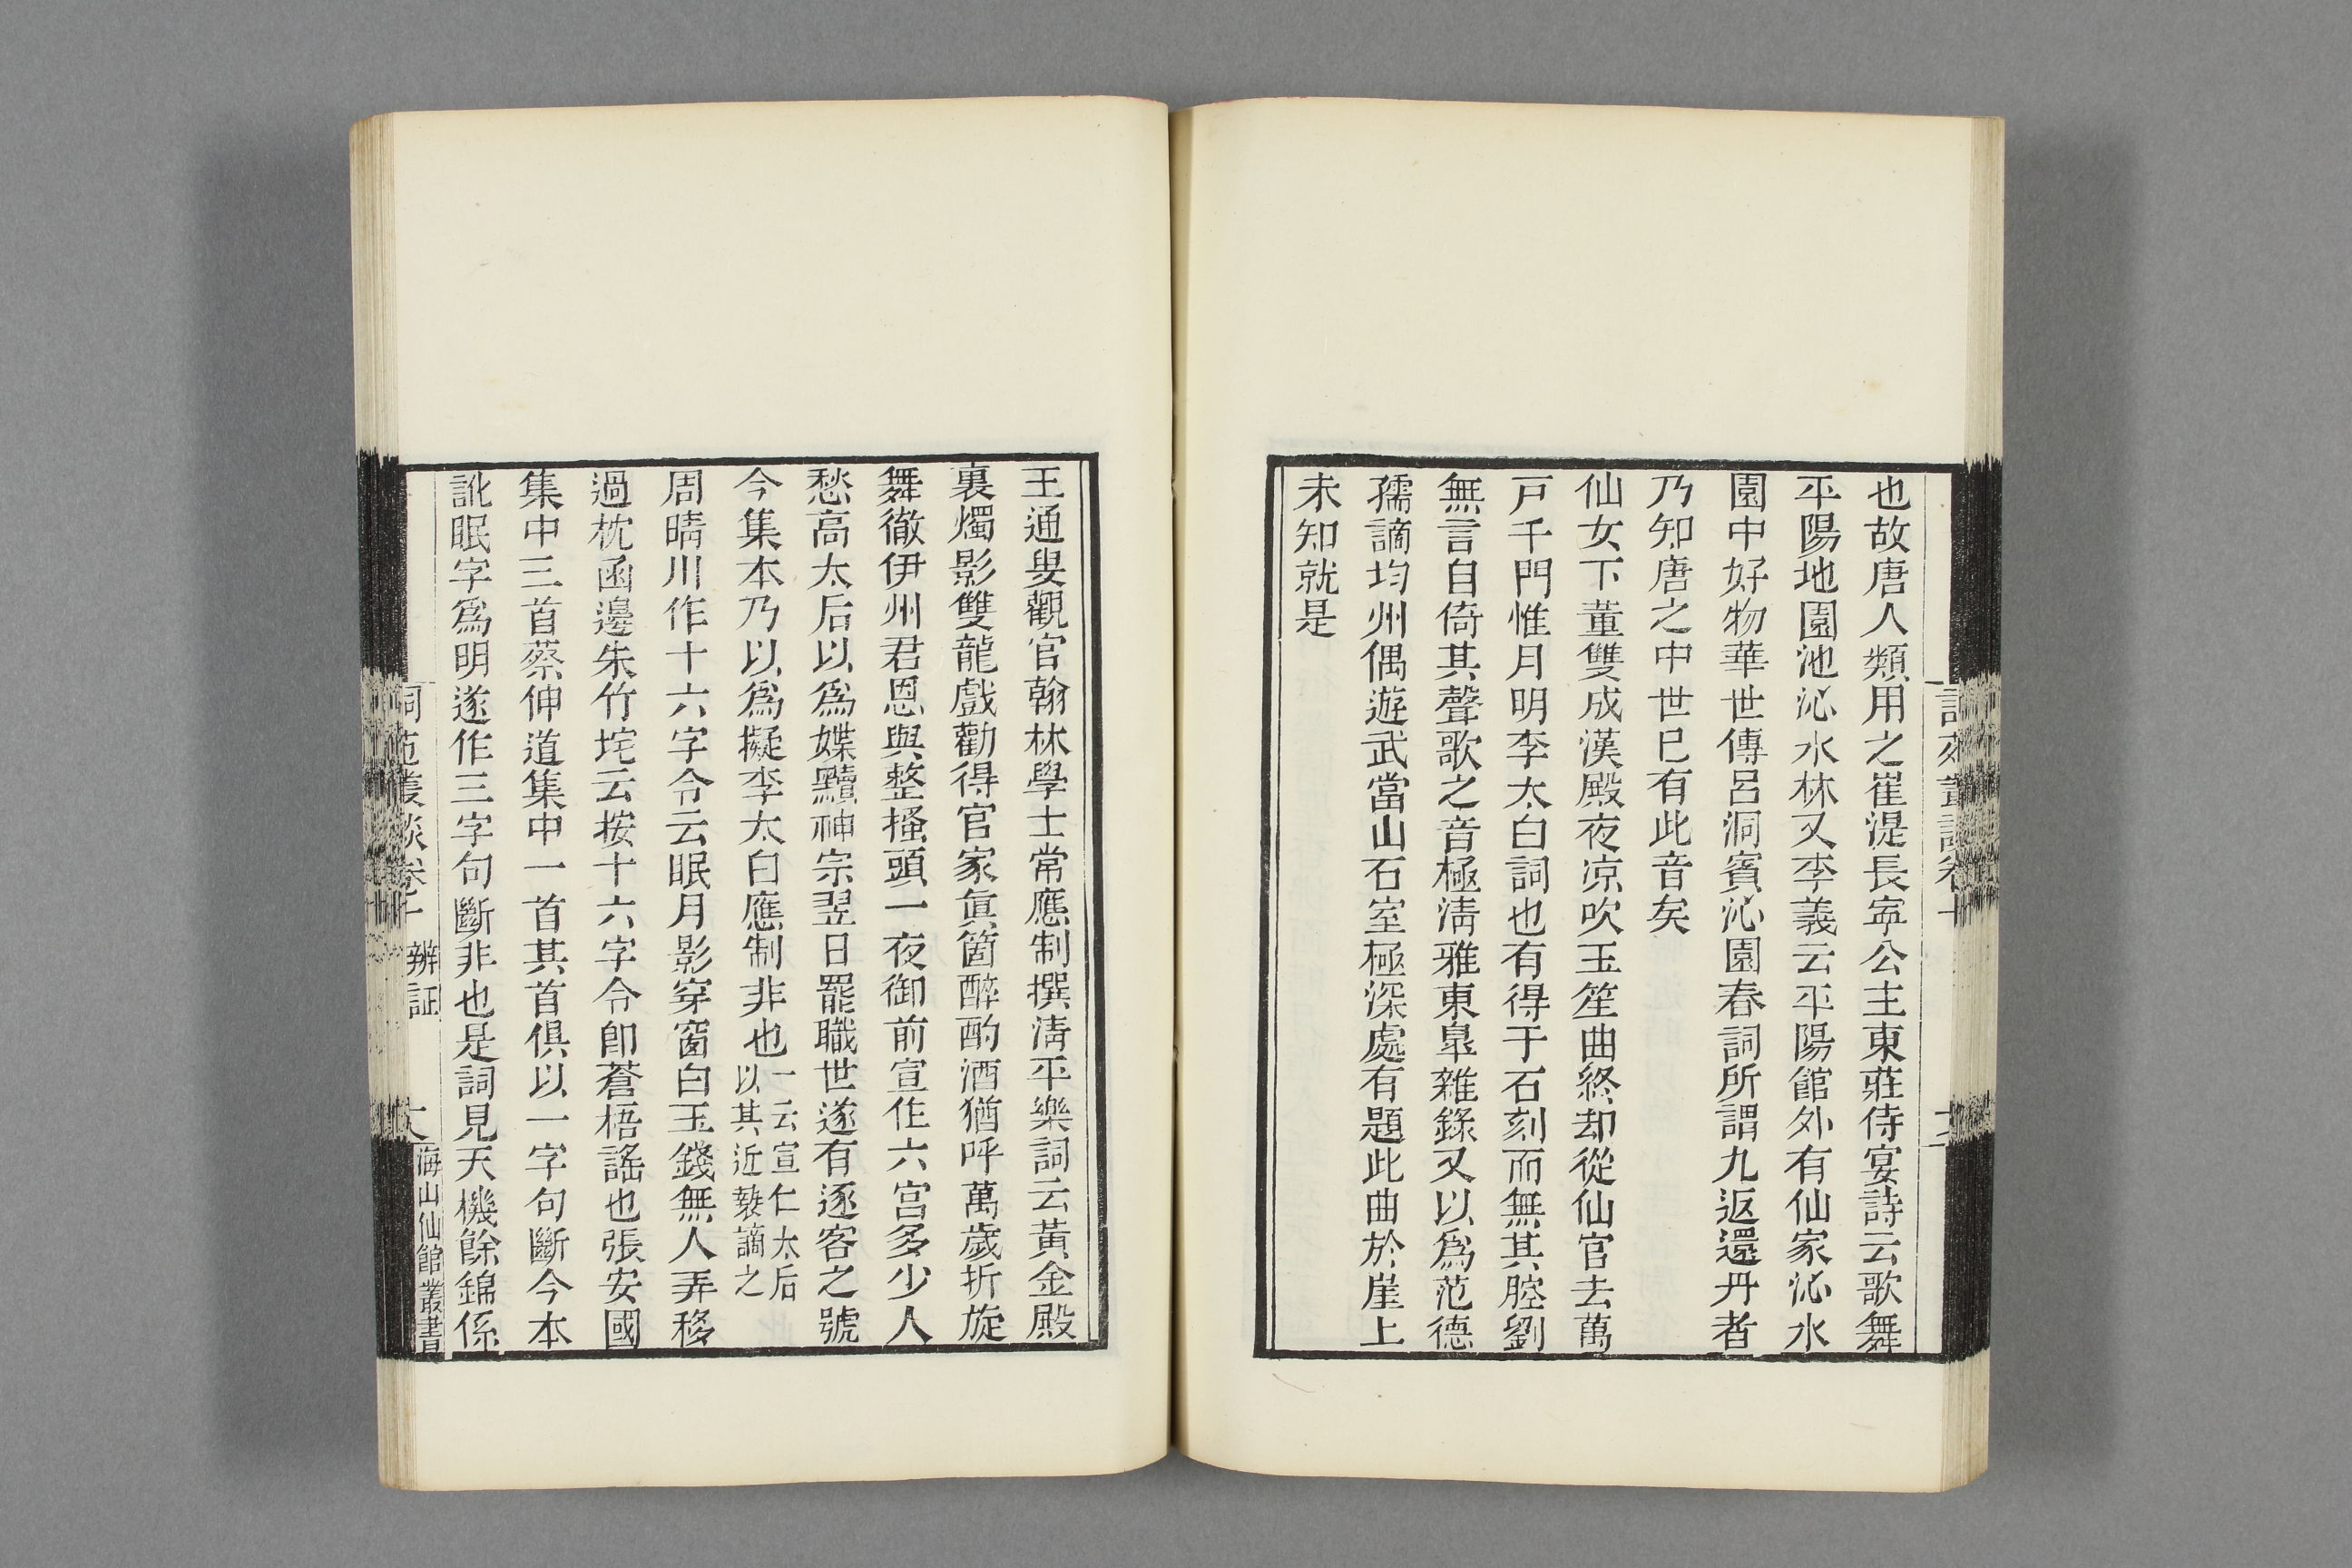 也故唐人類用之崔湜長寧公主東莊侍宴詩云歌舞
平陽地園池沁水林又李義云平陽館外有仙家沁水
園中好物華世傳呂洞賓沁園春詞所謂九返還丹者
乃知唐之中世已有此音矣
仙女下董雙成漢殿夜凉吹玉笙曲終却從仙官去萬
戸千門惟月明李太白詞也有得于石刻而無其腔劉
無言自倚其聲歌之音極淸雅東臯雜錄又以爲范德
孺謫均州偶遊武當山石室極深處有題此曲於崖上
未知就是
王通叟觀官翰林學士常應制撰淸平樂詞云黃金殿
裏燭影雙龍戲勸得官家眞箇醉酌酒猶呼萬歲折旋
舞徹伊州君恩與整搔頭一夜御前宣作六宮多少人
愁高太后以爲媟黷神宗翌日罷職世遂有逐客之號
今集本乃以爲擬李太白應制非也一云宣仁太后以其近褻謫之
周晴川作十六字令云眠月影穿窗白玉錢無人弄移
過枕函邊朱竹垞云按十六字令卽蒼梧謠也張安國
集中三首蔡伸道集中一首其首俱以一字句斷今本
訛眠字爲明遂作三字句斷非也是詞見天機餘錦係
詞苑叢談卷十 辨証
海山仙館叢書